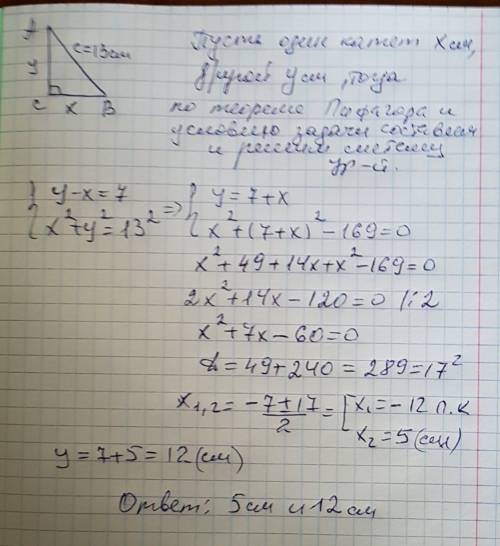 A
y
c=13см
C x B
Пусть один катет x см,
другой y см, тогда
по теореме Пифагора и
условию задачи составим
и решим систему
ур-й.
{ y-x=7
x²+y²=13² =>
{ y=7+x
x²+(7+x)²-169=0
x²+49+14x+x²-169=0
2x²+14x-120=0 |:2
x²+7x-60=0
D=49+240=289=17²
x₁,₂= (-7±17)/2 = [ x₁=-12 п.к
x₂=5(см)
y=7+5=12(см)
Ответ: 5см и 12см